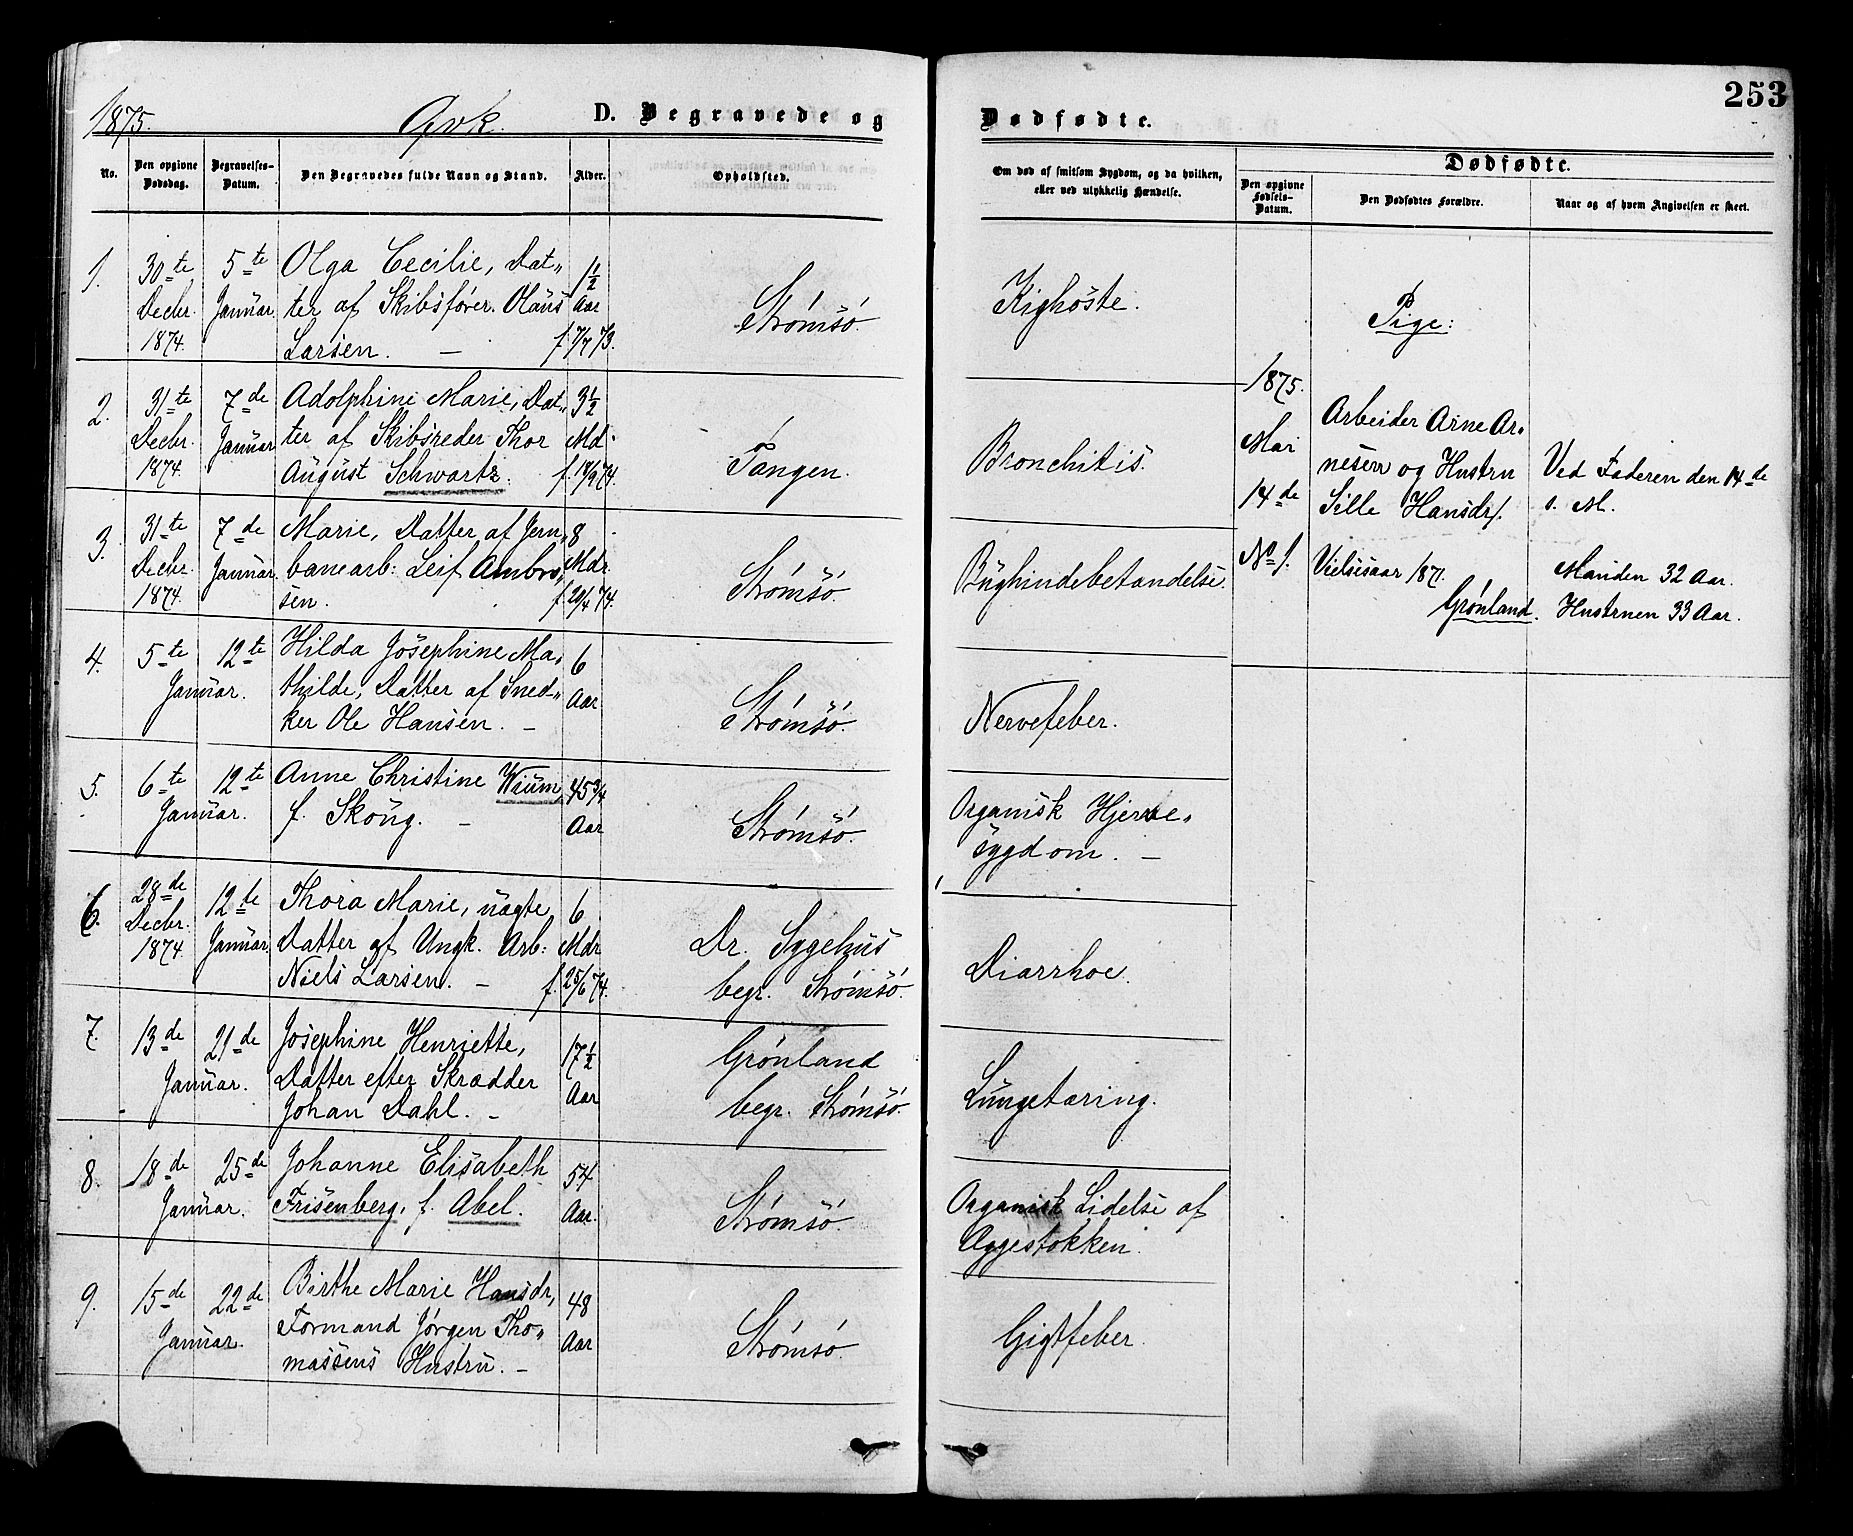 253
1875. Qvk. D. Begravede og Dødfødte.
No.
Den opgivne Dødsdag.
Begravelses-Datum.
Den Begravedes fulde Navn og Stand.
Alder.
Opholdsted.
Om død af smitsom Sygdom, og da hvilken,
eller ved ulykkelig Hændelse.
Dødfødte.
Den opgivne Fødsels-Datum.
Den Dødfødtes Forældre.
Naar og af hvem Angivelsen er skeet.
1. 30te 5te Olga Cecilie, Dat„ 1½
Decbr. Januar ter af Skibsfører Olaus Aar Strømsö. Kighoste.
1874. Larsen. — f. 7/7 73.
2. 31te 7de Adolphine Marie, Dat„ 3½
Decbr. Januar ter af Skibsreder Thor Md. Tangen. Bronchitis.
1874. August Schwartz. f. 18/9 74.
3. 31te 7de Marie, Datter af Jern„ 8
Decbr. Januar. banearb: Leif Ambro„ Mdr. Strømsö. Bughindebetændelse.
1874. sen. f. 20/4 74.
4. 5te 12te Hilda Josephine Ma„ 6
Januar. thilde, Datter af Sned„ Aar Strømsö. Nervefeber.
ker Ole Hansen. —
5. 6te 12te Anne Christine Wium, 45¾ Organisk Hjerte„
Januar. f. Skoug. — Aar Strømsö. sygdom. —
6. 28de 12te Thora Marie, uægte 6
Decbr. Januar Datter af Ungk. Arb: Mdr Dr. Sygehus Diarrhoe.
1874. Niels Larsen. — f. 25/6 74. begr. Strømsö.
7. 13de 21de Josephine Henriette, 17½ Grönland
Januar. Datter efter Skrædder Aar begr. Strømsö. Lungetæring.
Johan Dahl. —
8. 18de 25de Johanne Elisabeth 54 Organisk Lidelse af
Januar. Frisenberg, f. Abel. Aar. Strømsö. Æggestokken.
9. 15de 22de Birthe Marie Hansdr, 48
Januar. Formand Jørgen Tho„ Aar Strømsö. Gigtfeber.
massens Hustru. —
Pige:
1875.
Mai
14de
No 1.
Arbeider Arne Ar„
nesen og Hustru
Sille Hansdr.
Vielsesaar 1871.
Grönland.
Ved Faderen den 14de
s. M.
Manden 32 Aar.
Hustruen 33 Aar.